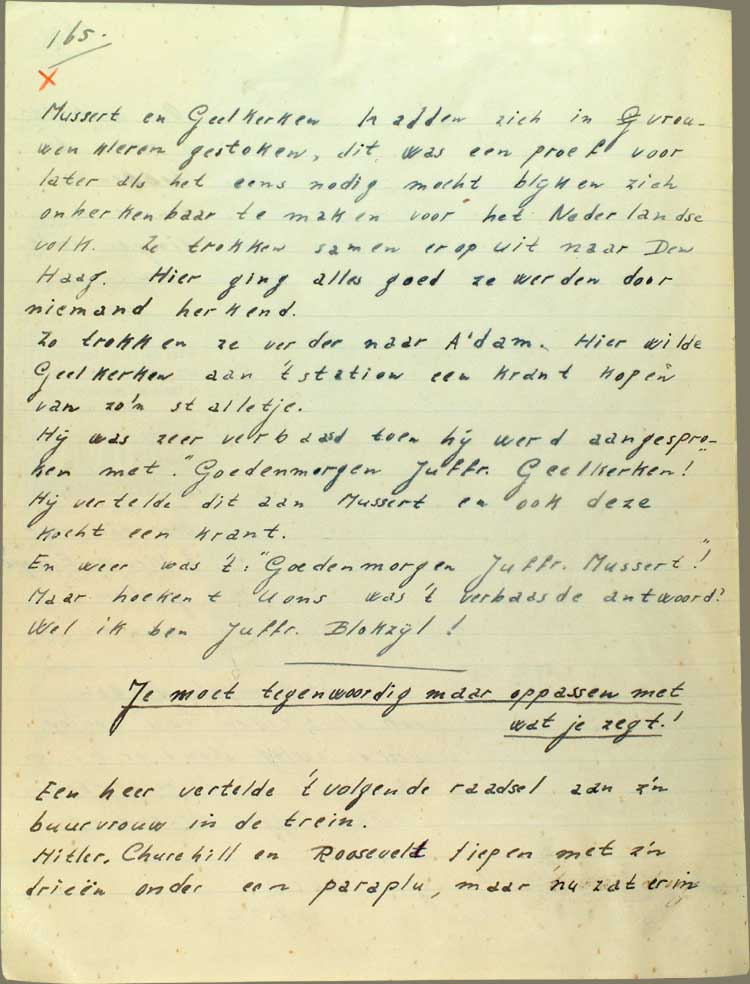 165.
x
Mussert en Geelkerken hadden zich in vrou-
wen kleren gestoken, dit was een proef voor
later als het eens nodig mocht blijken zich
onherkenbaar te maken voor het Nederlandse
volk. Ze trokken samen erop uit naar Den
Haag. Hier ging alles goed ze werden door
niemand herkend.
Zo trokken ze verder naar A'dam. Hier wilde
Geelkerken aan 't station een krant kopen
van zo'n stalletje.
Hij was zeer verbaasd toen hij werd aangespro-
ken met. "Goedenmorgen Juffr. Geelkerken!"
Hij vertelde dit aan Mussert en ook deze
kocht een krant.
En weer was 't: "Goedenmorgen Juffr. Mussert"!
Maar hoe kent U ons was 't verbaasde antwoord?
Wel ik ben Juffr. Blokzijl!
Je moet tegenwoordig maar oppassen met
wat je zegt!
Een heer vertelde 't volgende raadsel aan z'n
buurvrouw in de trein.
Hitler, Churchill en Roosevelt liepen met z'n
drieën onder een paraplu, maar nu zat er in